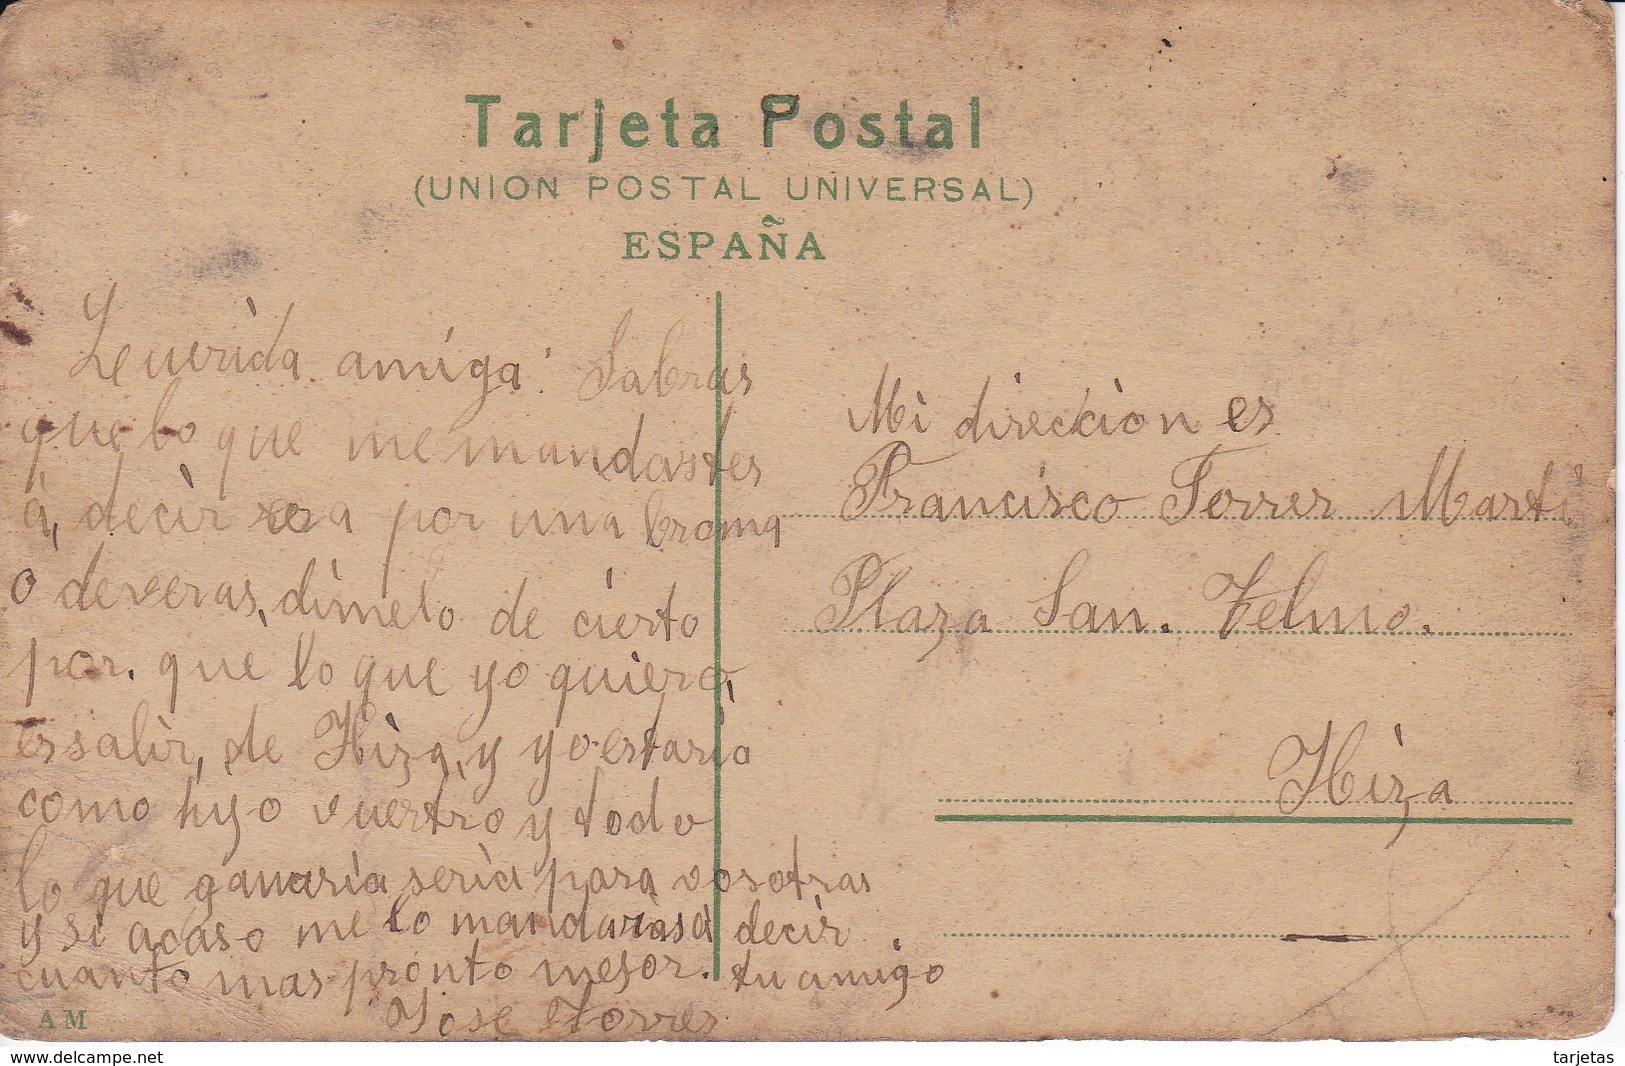 Tarjeta Postal
(UNION POSTAL UNIVERSAL)
ESPAÑA
Querida amiga: Sabras
que lo que me mandastes
á, decir sera por una broma
o deveras, dimelo de cierto
por. que lo que yo quiero,
es salir, de Hiza, y yo estaria
como hyjo vuestro y todo
lo que ganaria seria para vosotras
y si acaso me lo mandarias a decir
cuanto mas pronto mejor. tu amigo
Jose Torres
Mi direccion es
Francisco Torres Marti
Plaza San. Telmo.
Hiza
AM
delcampe.net
tarjetas